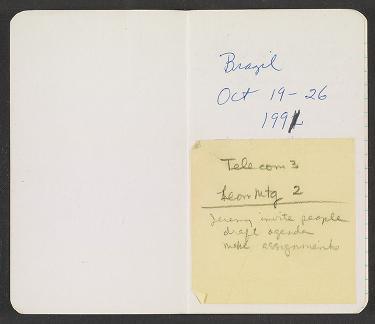 Brazil
Oct 19-26
1991
Telecom 3
Leon Mtg 2
Jeremy invite people
draft agenda
make assignments